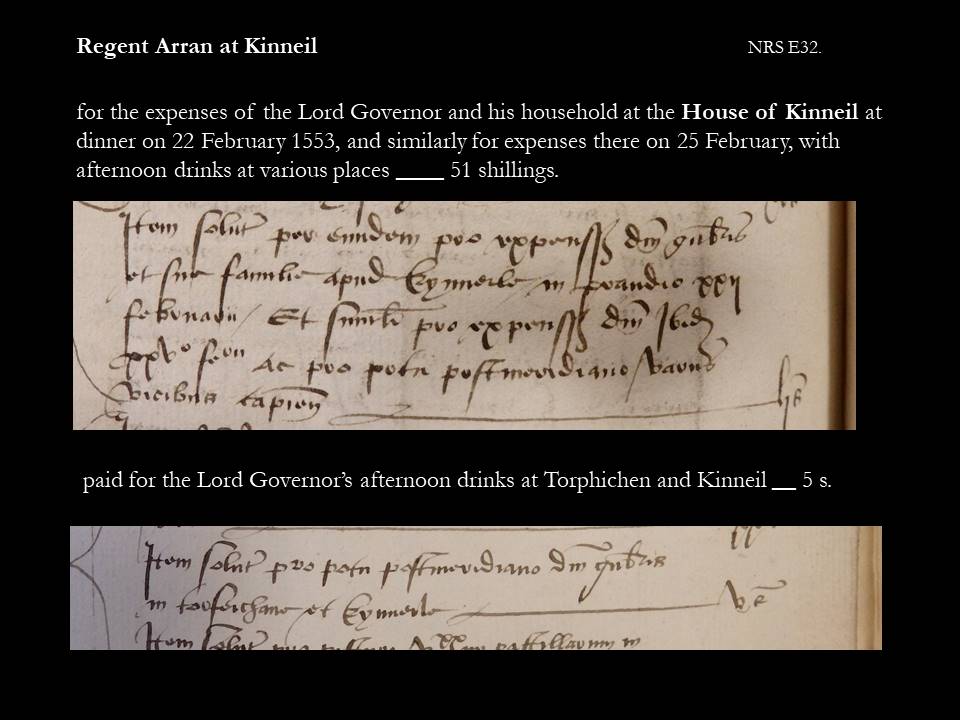 Regent Arran at Kinneil NRS E32.
for the expenses of the Lord Governor and his household at the House of Kinneil at
dinner on 22 February 1553, and similarly for expenses there on 25 February, with
afternoon drinks at various places ____ 51 shillings.
Item solut per eundem pro expenss dm gubris
et sue familie apud Kynneile in prandio xxij
februarii Et simili pro expenss dm Ibid
xxvo feru ac pro potu postmeridiano variis
vicibus capien ljs
paid for the Lord Governor’s afternoon drinks at Torphichen and Kinneil __ 5 s.
Item solut pro potu postmeridiano dm gubris
in torfeichane et Kynneile vs
Item solut